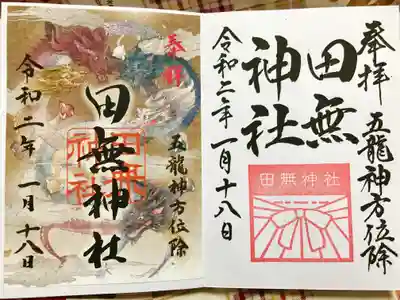 奉拝
五龍神方位除
田無
神社
田無神社
令和二年一月十八日
奉拝
五龍神方位除
田無神社
田無
神社
令和二年一月十八日